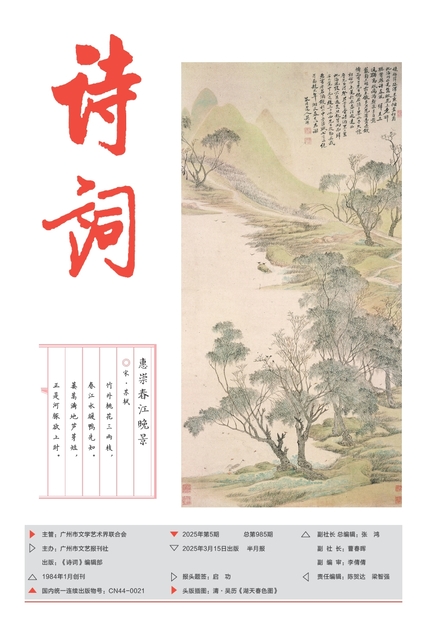 诗词
惠崇春江晚景
宋·苏轼
竹外桃花三两枝，
春江水暖鸭先知。
蒌蒿满地芦芽短，
正是河豚欲上时。
主管：广州市文学艺术界联合会
主办：广州市文艺报刊社
出版：《诗词》编辑部
1984年1月创刊
国内统一连续出版物号：CN44-0021
2025年第5期 总第985期
2025年3月15日出版 半月报
报头题签：启 功
头版插图：清·吴历《湖天春色图》
副社长 总编辑：张 鸿
副 社 长：曹春晖
副 编 审：李倩倩
责任编辑：陈贺达 梁智强